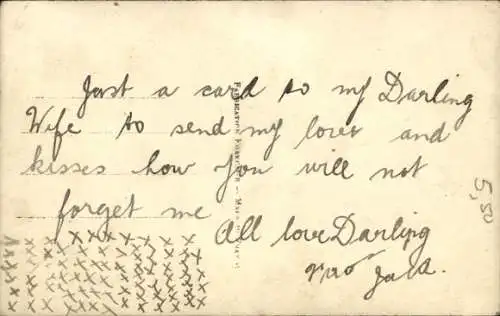 Just a card to my Darling
Wife to send my love and
kisses how you will not
forget me
All love Darling
Jack.
5,50